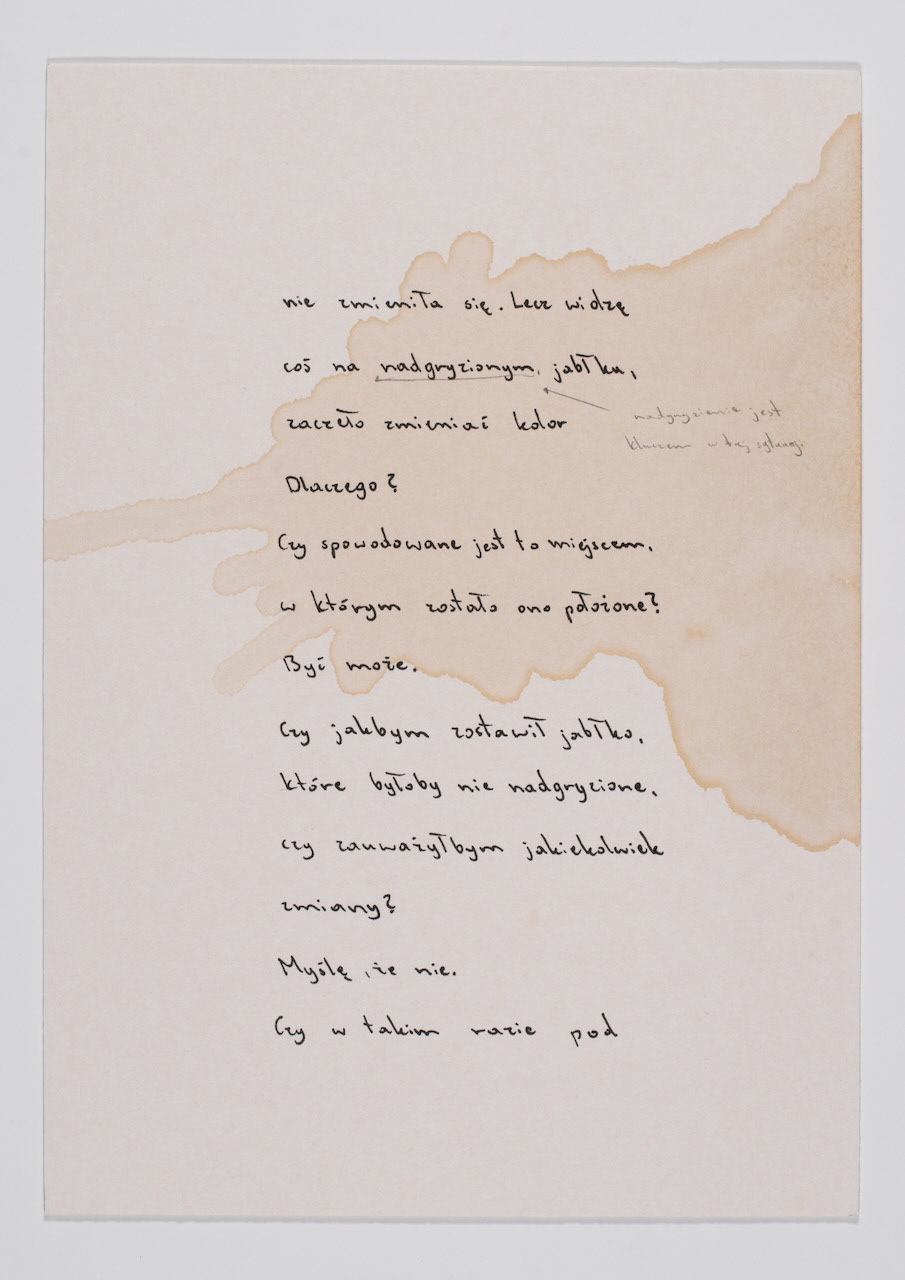 nie zmieniła się. Lecz widzę
coś na nadgryzionym, jabłku,
zaczęło zmieniać kolor
nadgryzienie jest
kluczem w tej sytuacji
Dlaczego?
Czy spowodowane jest to miejscem,
w którym zostało ono położone?
Być może.
Czy jakbym zostawił jabłko,
które byłoby nie nadgryzione,
czy zauważyłbym jakiekolwiek
zmiany?
Myślę, że nie.
Czy w takim razie pod